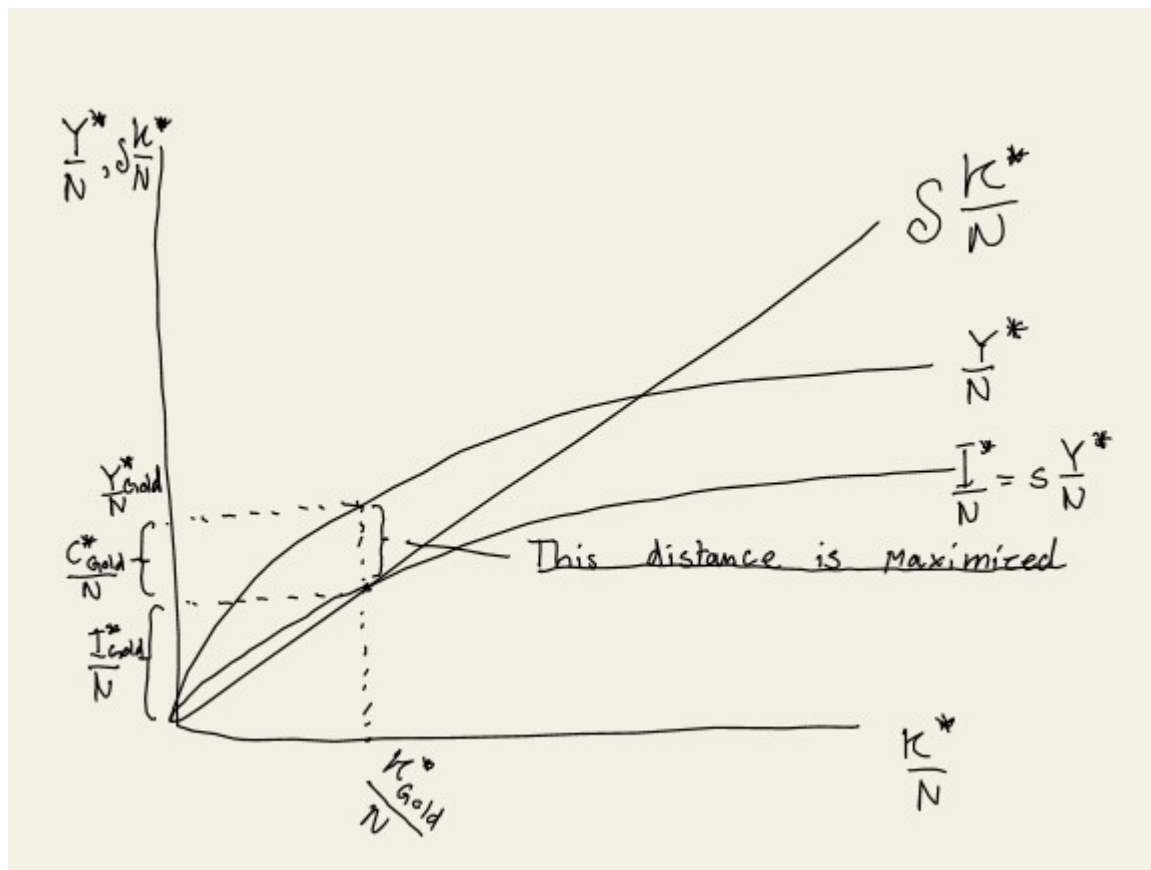 Y*/N, δK*/N
δ K*/N
Y*/N
I*/N = s Y*/N
Y*Gold/N
C*Gold/N
This distance is maximized
I*Gold/N
K*Gold/N
K*/N